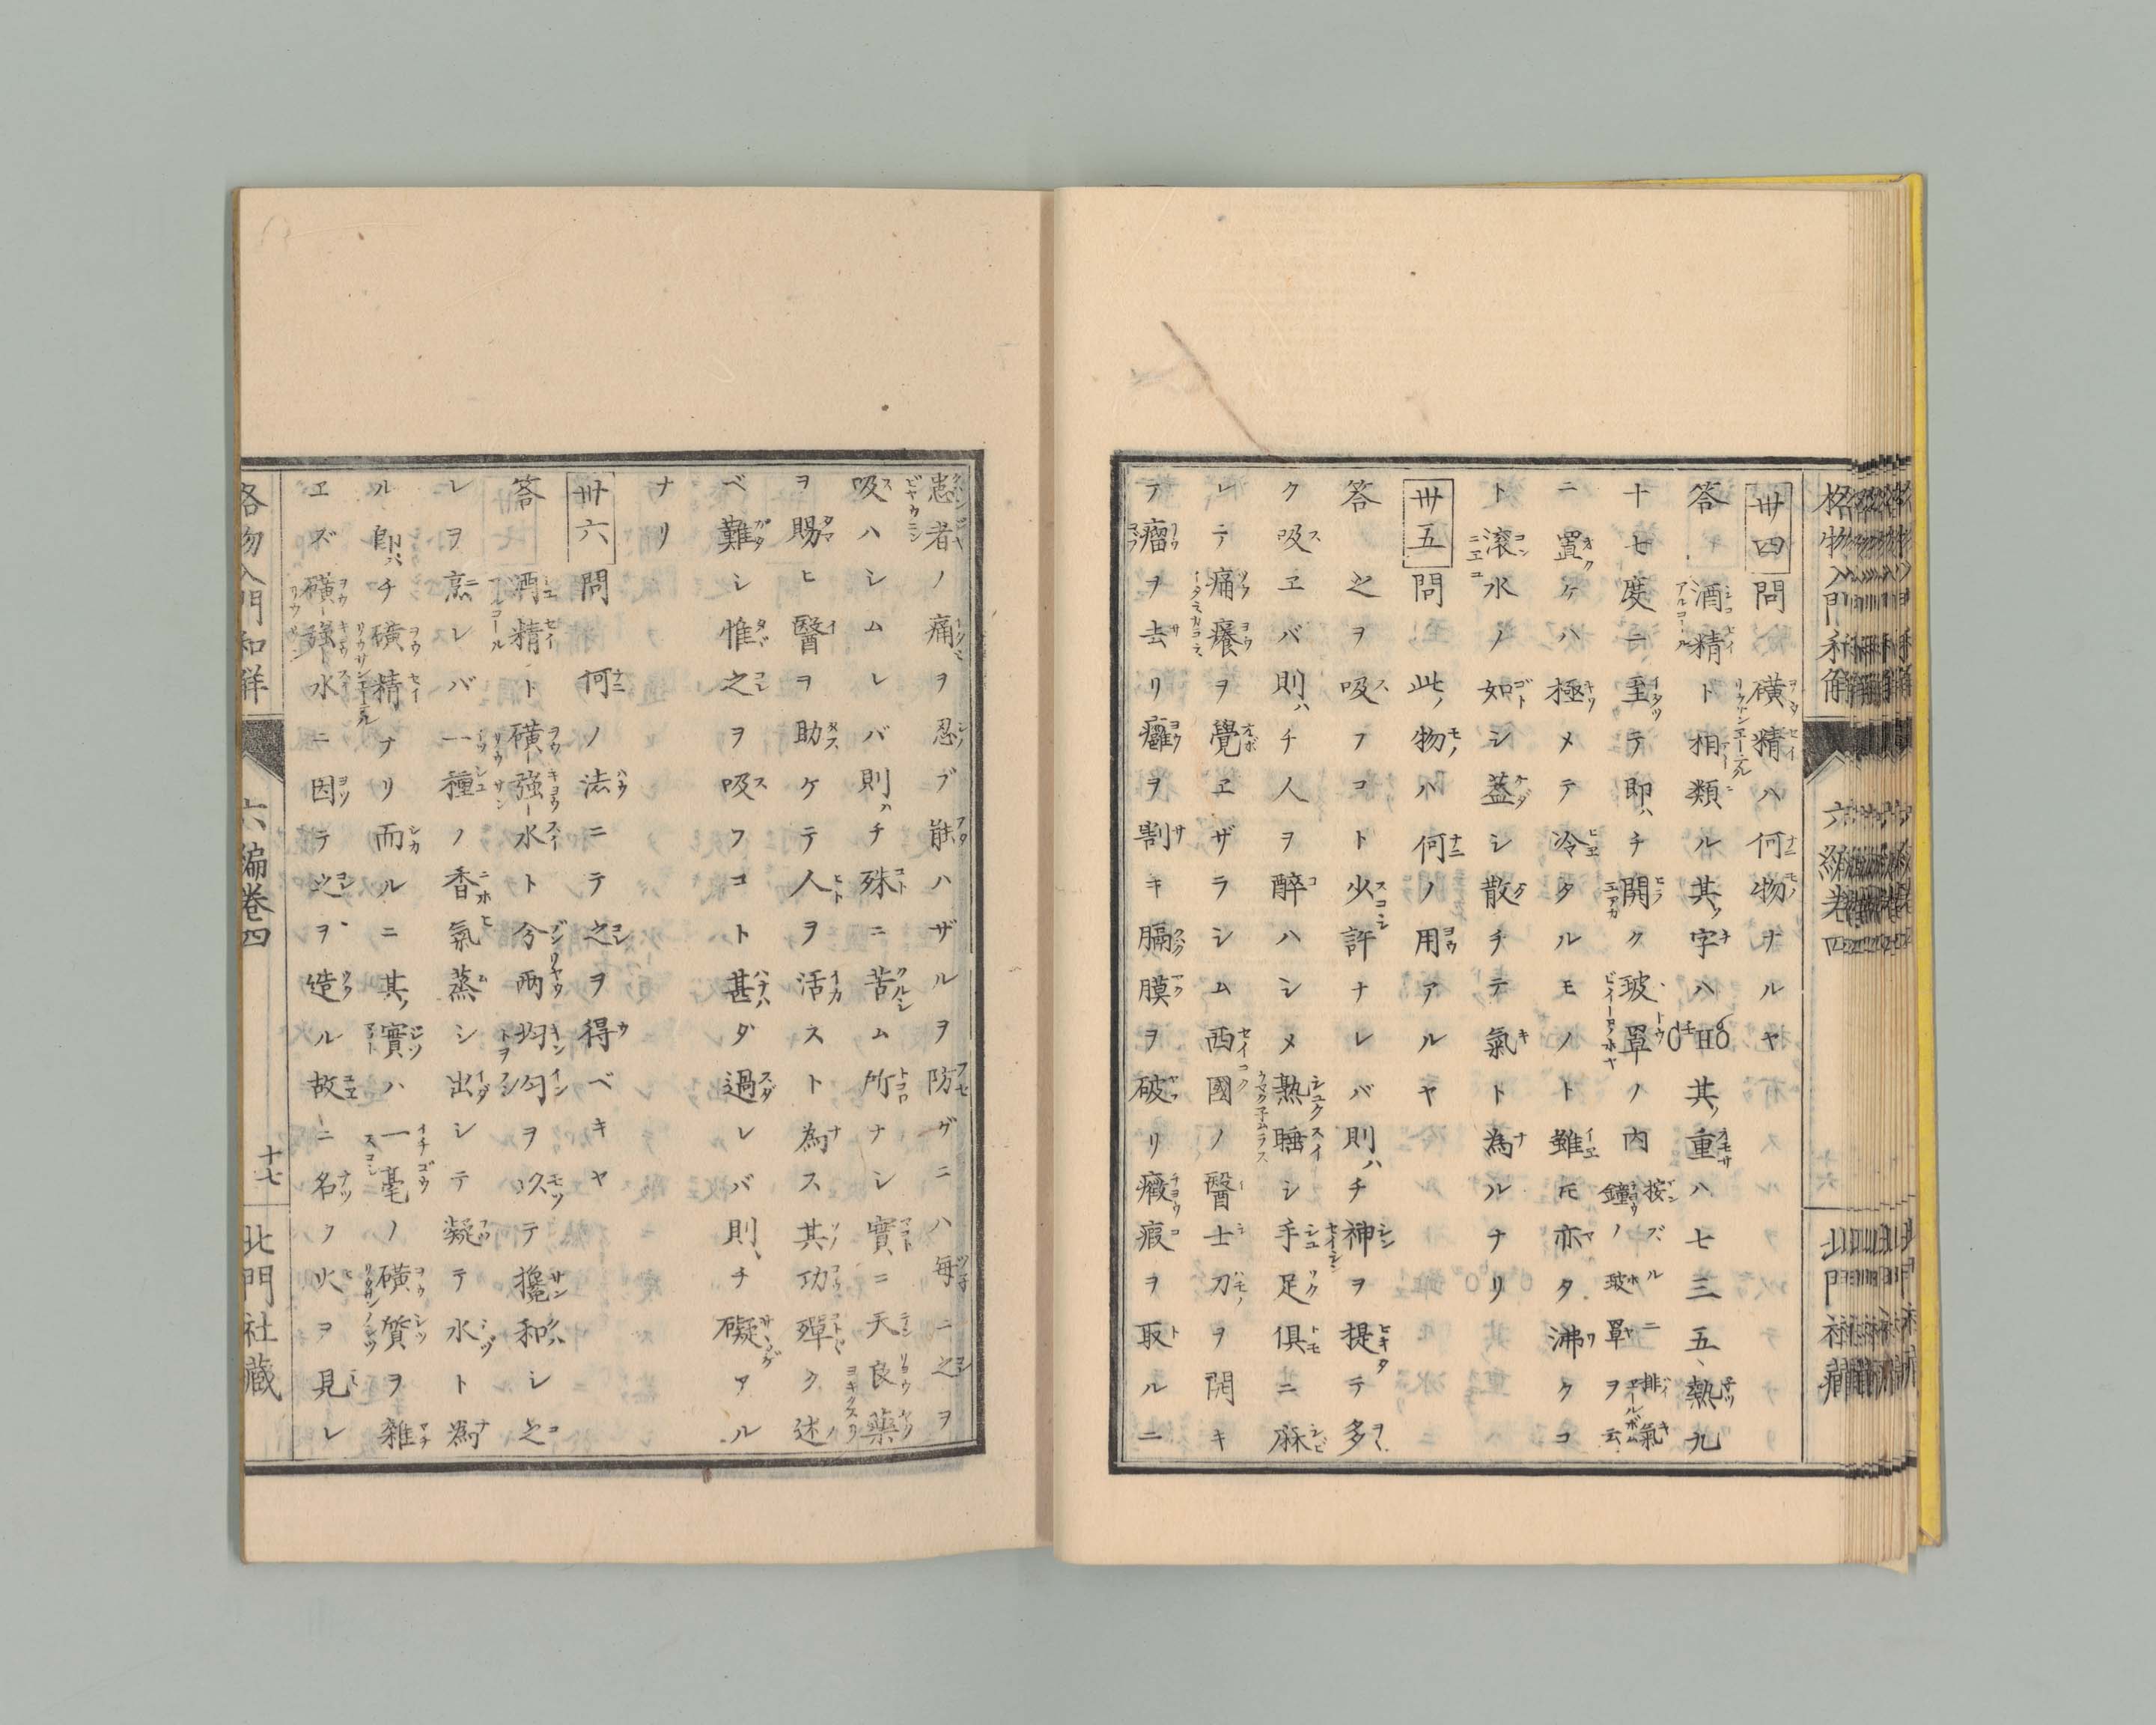 格物入門和解 六編卷四 北門社藏
卅四 問 磺精ハ何物ナルヤ
答 酒精ト相類ル其字ハ 其重ハ七三五、熱九
十七度ニ至テ即チ開ク玻罩ノ内 按ズルニ排氣鐘ノ玻罩ヲ云
ニ置ケハ極メテ冷タルモノト雖モ亦タ沸クコ
ト滾水ノ如シ蓋シ散チテ氣ト為ルナリ
卅五 問 此物ハ何ノ用アルヤ
答 之ヲ吸フコト少許ナレバ則チ神ヲ提テ多
ク吸ヱバ則チ人ヲ醉ハシメ熟睡シ手足俱ニ麻
レテ痛癢ヲ覺ヱザラシム西國ノ醫士刀ヲ開キ
テ瘤ヲ去リ癰ヲ割キ膈膜ヲ破リ癥瘕ヲ取ルニ
患者ノ痛ヲ忍ブ能ハザルヲ防グニハ每ニ之ヲ
吸ハシムレバ則チ殊ニ苦ム所ナシ實ニ天良藥
ヲ賜ヒ醫ヲ助ケテ人ヲ活スト為ス其功殫ク述
ベ難シ惟之ヲ吸フコト甚ダ過レバ則チ礙アル
ナリ
卅六 問 何ノ法ニテ之ヲ得ベキヤ
答 酒精ト磺強水ト分兩均勻ヲ以テ攙和シ之
レヲ烹レバ一種ノ香氣蒸シ出シテ凝テ水ト為
ル即チ磺精ナリ而ルニ其實ハ一毫ノ磺質ヲ雜
ヱズ磺強水ニ因テ之ヲ造ル故ニ名ク火ヲ見レ
格物入門和解 六編卷四 十七 北門社藏